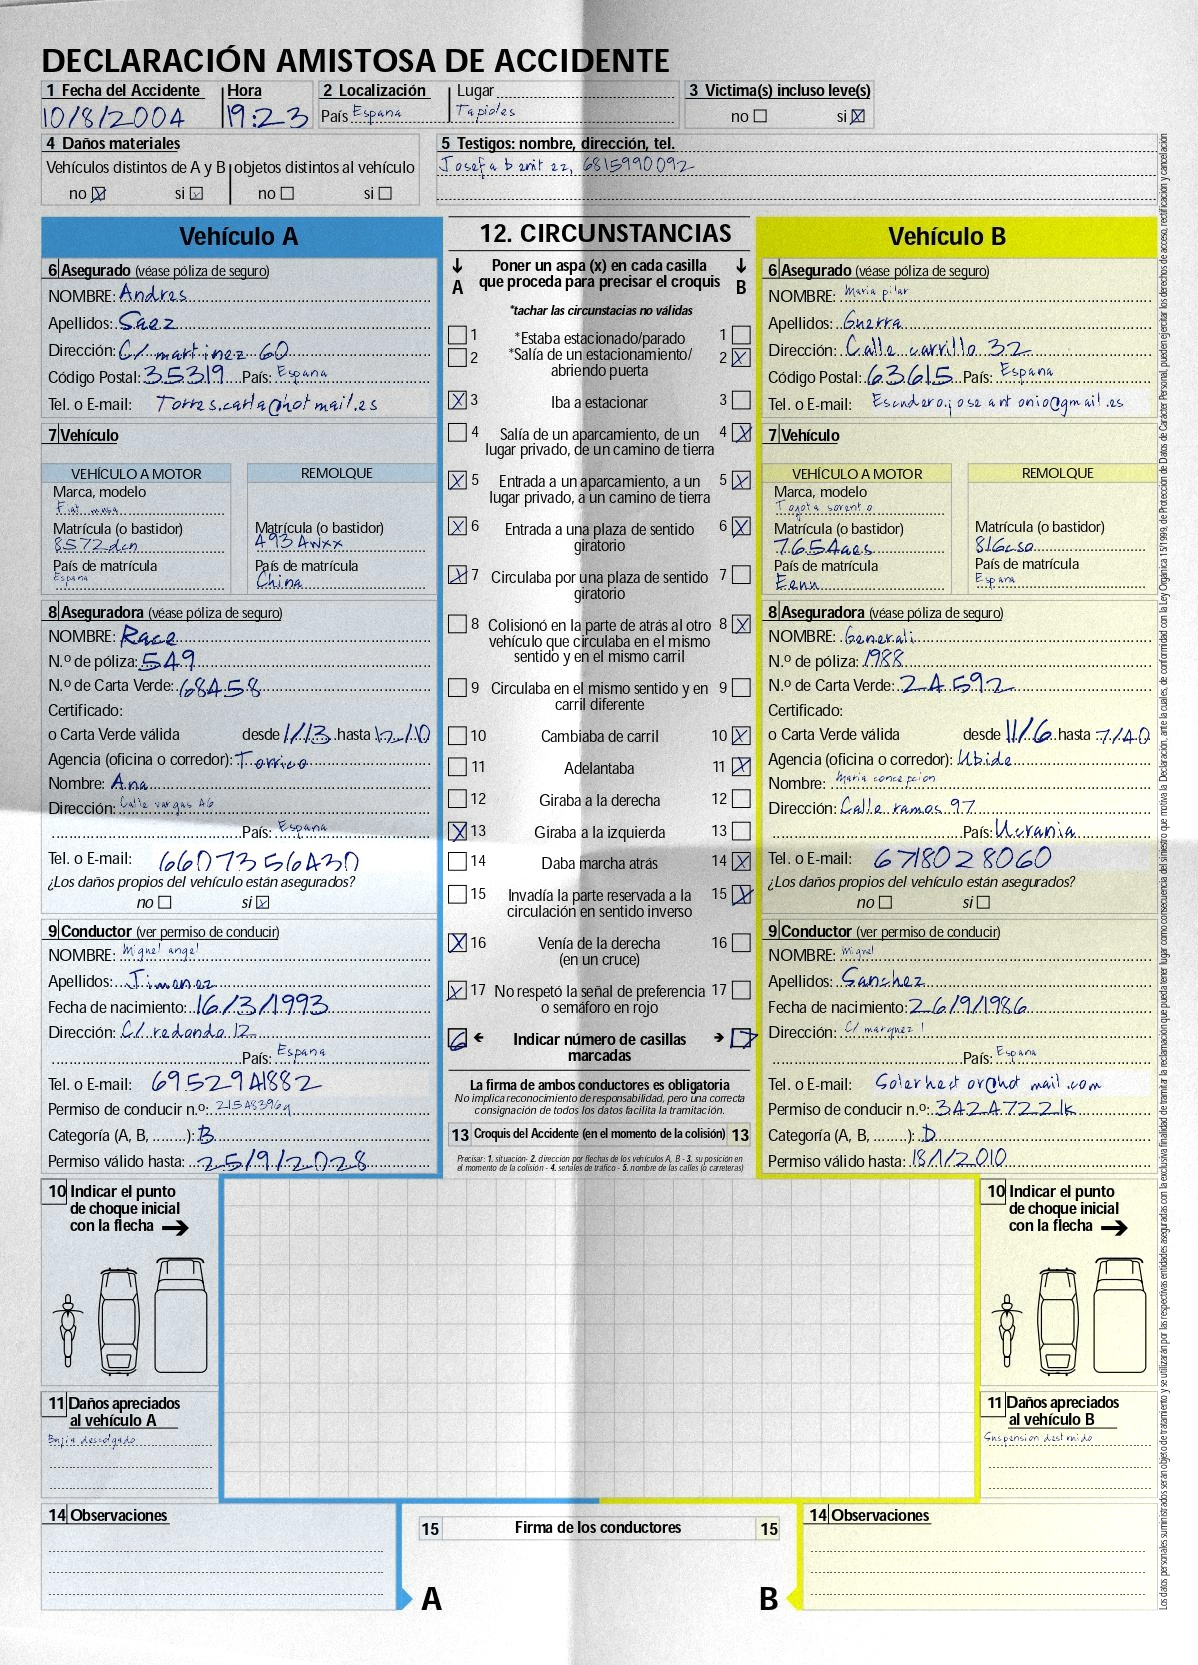 DECLARACIÓN AMISTOSA DE ACCIDENTE
1 Fecha del Accidente Hora 2 Localización Lugar 3 Victima(s) incluso leve(s)
10/8/2004 19:23 País España Tapioles no si X
4 Daños materiales
Vehículos distintos de A y B objetos distintos al vehículo
no X si X no si
5 Testigos: nombre, dirección, tel.
Josefa benitez, 6815990092
Vehículo A
6 Asegurado (véase póliza de seguro)
NOMBRE: Andres
Apellidos: Saez
Dirección: C/ martinez 60
Código Postal: 35319 País: España
Tel. o E-mail: Torres.carla@hotmail.es
7 Vehículo
VEHÍCULO A MOTOR REMOLQUE
Marca, modelo
Fiat musa
Matrícula (o bastidor) Matrícula (o bastidor)
8572dcn 493Awxx
País de matrícula País de matrícula
España China
8 Aseguradora (véase póliza de seguro)
NOMBRE: Race
N.º de póliza: 549
N.º de Carta Verde: 68458
Certificado:
o Carta Verde válida desde 1/13 hasta 12/10
Agencia (oficina o corredor): Torrico
Nombre: Ana
Dirección: Calle vargas 46
País: España
Tel. o E-mail: 6607356430
¿Los daños propios del vehículo están asegurados?
no si X
9 Conductor (ver permiso de conducir)
NOMBRE: Miguel angel
Apellidos: Jimenez
Fecha de nacimiento: 16/3/1993
Dirección: C/ redondo 12
País: España
Tel. o E-mail: 6952941882
Permiso de conducir n.º: 21548396q
Categoría (A, B, ........): B
Permiso válido hasta: 25/9/2028
12. CIRCUNSTANCIAS
A Poner un aspa (x) en cada casilla B
que proceda para precisar el croquis
*tachar las circunstacias no válidas
1 *Estaba estacionado/parado 1
2 *Salía de un estacionamiento/ 2 X
abriendo puerta
X 3 Iba a estacionar 3
4 Salía de un aparcamiento, de un 4 X
lugar privado, de un camino de tierra
X 5 Entrada a un aparcamiento, a un 5 X
lugar privado, a un camino de tierra
X 6 Entrada a una plaza de sentido 6 X
giratorio
X 7 Circulaba por una plaza de sentido 7
giratorio
8 Colisionó en la parte de atrás al otro 8 X
vehículo que circulaba en el mismo
sentido y en el mismo carril
9 Circulaba en el mismo sentido y en 9
carril diferente
10 Cambiaba de carril 10 X
11 Adelantaba 11 X
12 Giraba a la derecha 12
X 13 Giraba a la izquierda 13
14 Daba marcha atrás 14 X
15 Invadía la parte reservada a la 15 X
circulación en sentido inverso
X 16 Venía de la derecha 16
(en un cruce)
X 17 No respetó la señal de preferencia 17
o semáforo en rojo
6 Indicar número de casillas 7
marcadas
La firma de ambos conductores es obligatoria
No implica reconocimiento de responsabilidad, pero una correcta
consignación de todos los datos facilita la tramitación.
13 Croquis del Accidente (en el momento de la colisión) 13
Precisar: 1. situación- 2. dirección por flechas de los vehículos A, B - 3. su posición en
el momento de la colisión - 4. señales de tráfico - 5. nombre de las calles (o carreteras)
Vehículo B
6 Asegurado (véase póliza de seguro)
NOMBRE: Maria pilar
Apellidos: Guerra
Dirección: Calle carrillo 32
Código Postal: 63615 País: España
Tel. o E-mail: Escudero.joseantonio@gmail.es
7 Vehículo
VEHÍCULO A MOTOR REMOLQUE
Marca, modelo
Toyota sorento
Matrícula (o bastidor) Matrícula (o bastidor)
7654aes 816cso
País de matrícula País de matrícula
Eenn España
8 Aseguradora (véase póliza de seguro)
NOMBRE: Generali
N.º de póliza: 1988
N.º de Carta Verde: 24592
Certificado:
o Carta Verde válida desde 11/6 hasta 7/40
Agencia (oficina o corredor): Ubide
Nombre: Maria concepcion
Dirección: Calle ramos 97
País: Ucrania
Tel. o E-mail: 6718028060
¿Los daños propios del vehículo están asegurados?
no si
9 Conductor (ver permiso de conducir)
NOMBRE: Miguel
Apellidos: Sanchez
Fecha de nacimiento: 26/9/1986
Dirección: C/ marquez 1
País: España
Tel. o E-mail: Solerhector@hotmail.com
Permiso de conducir n.º: 34247221k
Categoría (A, B, ........): D
Permiso válido hasta: 18/1/2010
10 Indicar el punto
de choque inicial
con la flecha
11 Daños apreciados
al vehículo A
Bujia descolgado
10 Indicar el punto
de choque inicial
con la flecha
11 Daños apreciados
al vehículo B
Suspension destruido
14 Observaciones
15 Firma de los conductores 15
A B
14 Observaciones
Los datos personales suministrados seran objeto de tratamiento y se utilizarán por las respectivas entidades aseguradas con la exclusiva finalidad de tramitar la reclamación que pueda tener lugar como consecuencia del siniestro que motiva la Declaración, ante la cuales, de conformidad con la Ley Organica 15/1999, de Protección de Datos de Carácter Personal, pueden ejercitar los derechos de acceso, rectificación y cancelación